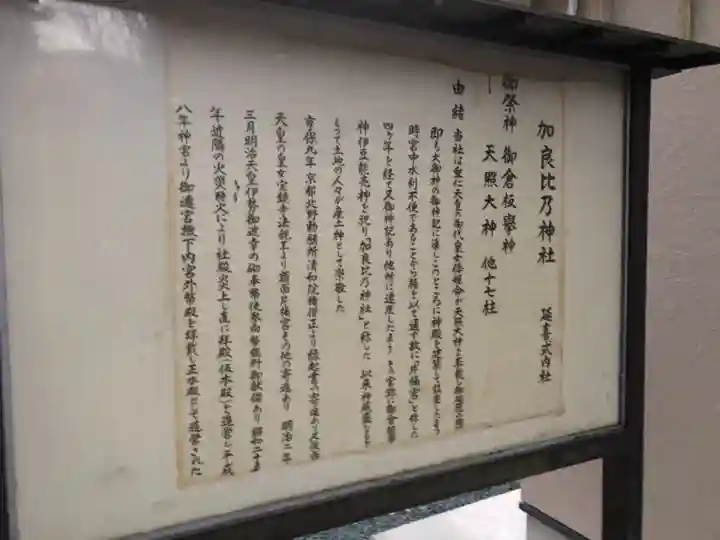 加良比乃神社 延喜式内社
御祭神 御倉板擧神
天照大神 他十七柱
由緒 当社は垂仁天皇の御代皇女倭姫命が天照大神を奉戴し
即ち大御神の御神記に準じこのところに神殿を建築して鎮座したまう
時宮中水利不便であることから樋を以て通す故に「片樋宮」と称した
四ヶ年を経て又御神記あり他所に遷座したまう
神伊豆能売神を祀り「加良比乃神社」と称した 以来神威
もって土地の人々が産土神として崇敬した
享保九年京都北野勅願所清和院
天皇の皇女宝鏡寺法親王より額面片樋宮その他の寄進あり 明治二年
三月明治天皇伊勢御遷幸の砌奉幣使参向幣饌料御献備あり 昭和二十
年近隣の火災飛火により社殿炎上し直に拝殿(仮本殿)を造営し平成
八年神宮より御遷宮撤下内宮外幣殿を拝戴し正水殿として造営された